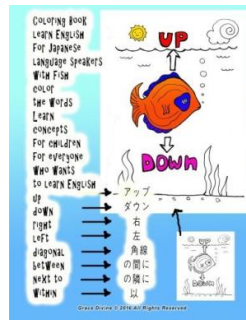 Coloring Book
Learn English
For Japanese
Language Speakers
With Fish
color
the Words
Learn
concepts
For children
For everyone
Who Wants
to Learn English
up
down
right
Left
diagonal
between
Next to
Within
UP
DOWN
アップ
ダウン
右
左
角線
の間に
の隣に
以
Grace Divine © 2016 All Rights Reserved